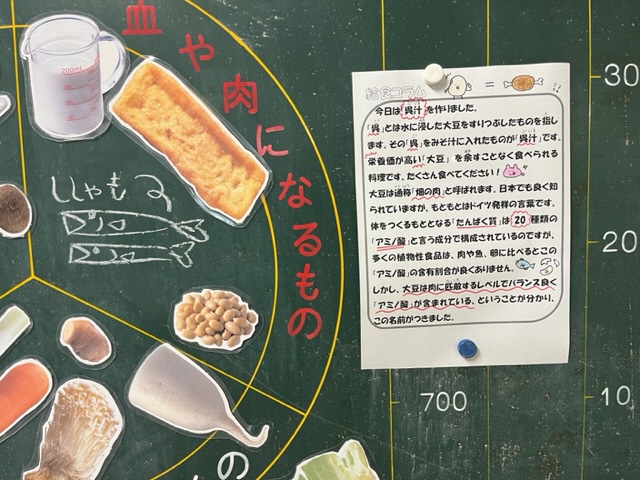 血や肉になるもの
200mL
ししゃも2
の
給食コラム
=
今日は「呉汁」を作りました。
「呉」とは水に浸した大豆をすりつぶしたものを指し
ます。その「呉」をみそ汁に入れたものが「呉汁」です。
栄養価が高い「大豆」を余すことなく食べられる
料理です。たくさん食べてください！
大豆は通称“畑の肉”と呼ばれます。日本でも良く知
られていますが、もともとはドイツ発祥の言葉です。
体をつくるもととなる「たんぱく質」は20種類の
「アミノ酸」と言う成分で構成されているのですが、
多くの植物性食品は、肉や魚、卵に比べるとこの
「アミノ酸」の含有割合が良くありません。
しかし、大豆は肉に匹敵するレベルでバランス良く
「アミノ酸」が含まれている、ということが分かり、
この名前がつきました。
30
20
10
700